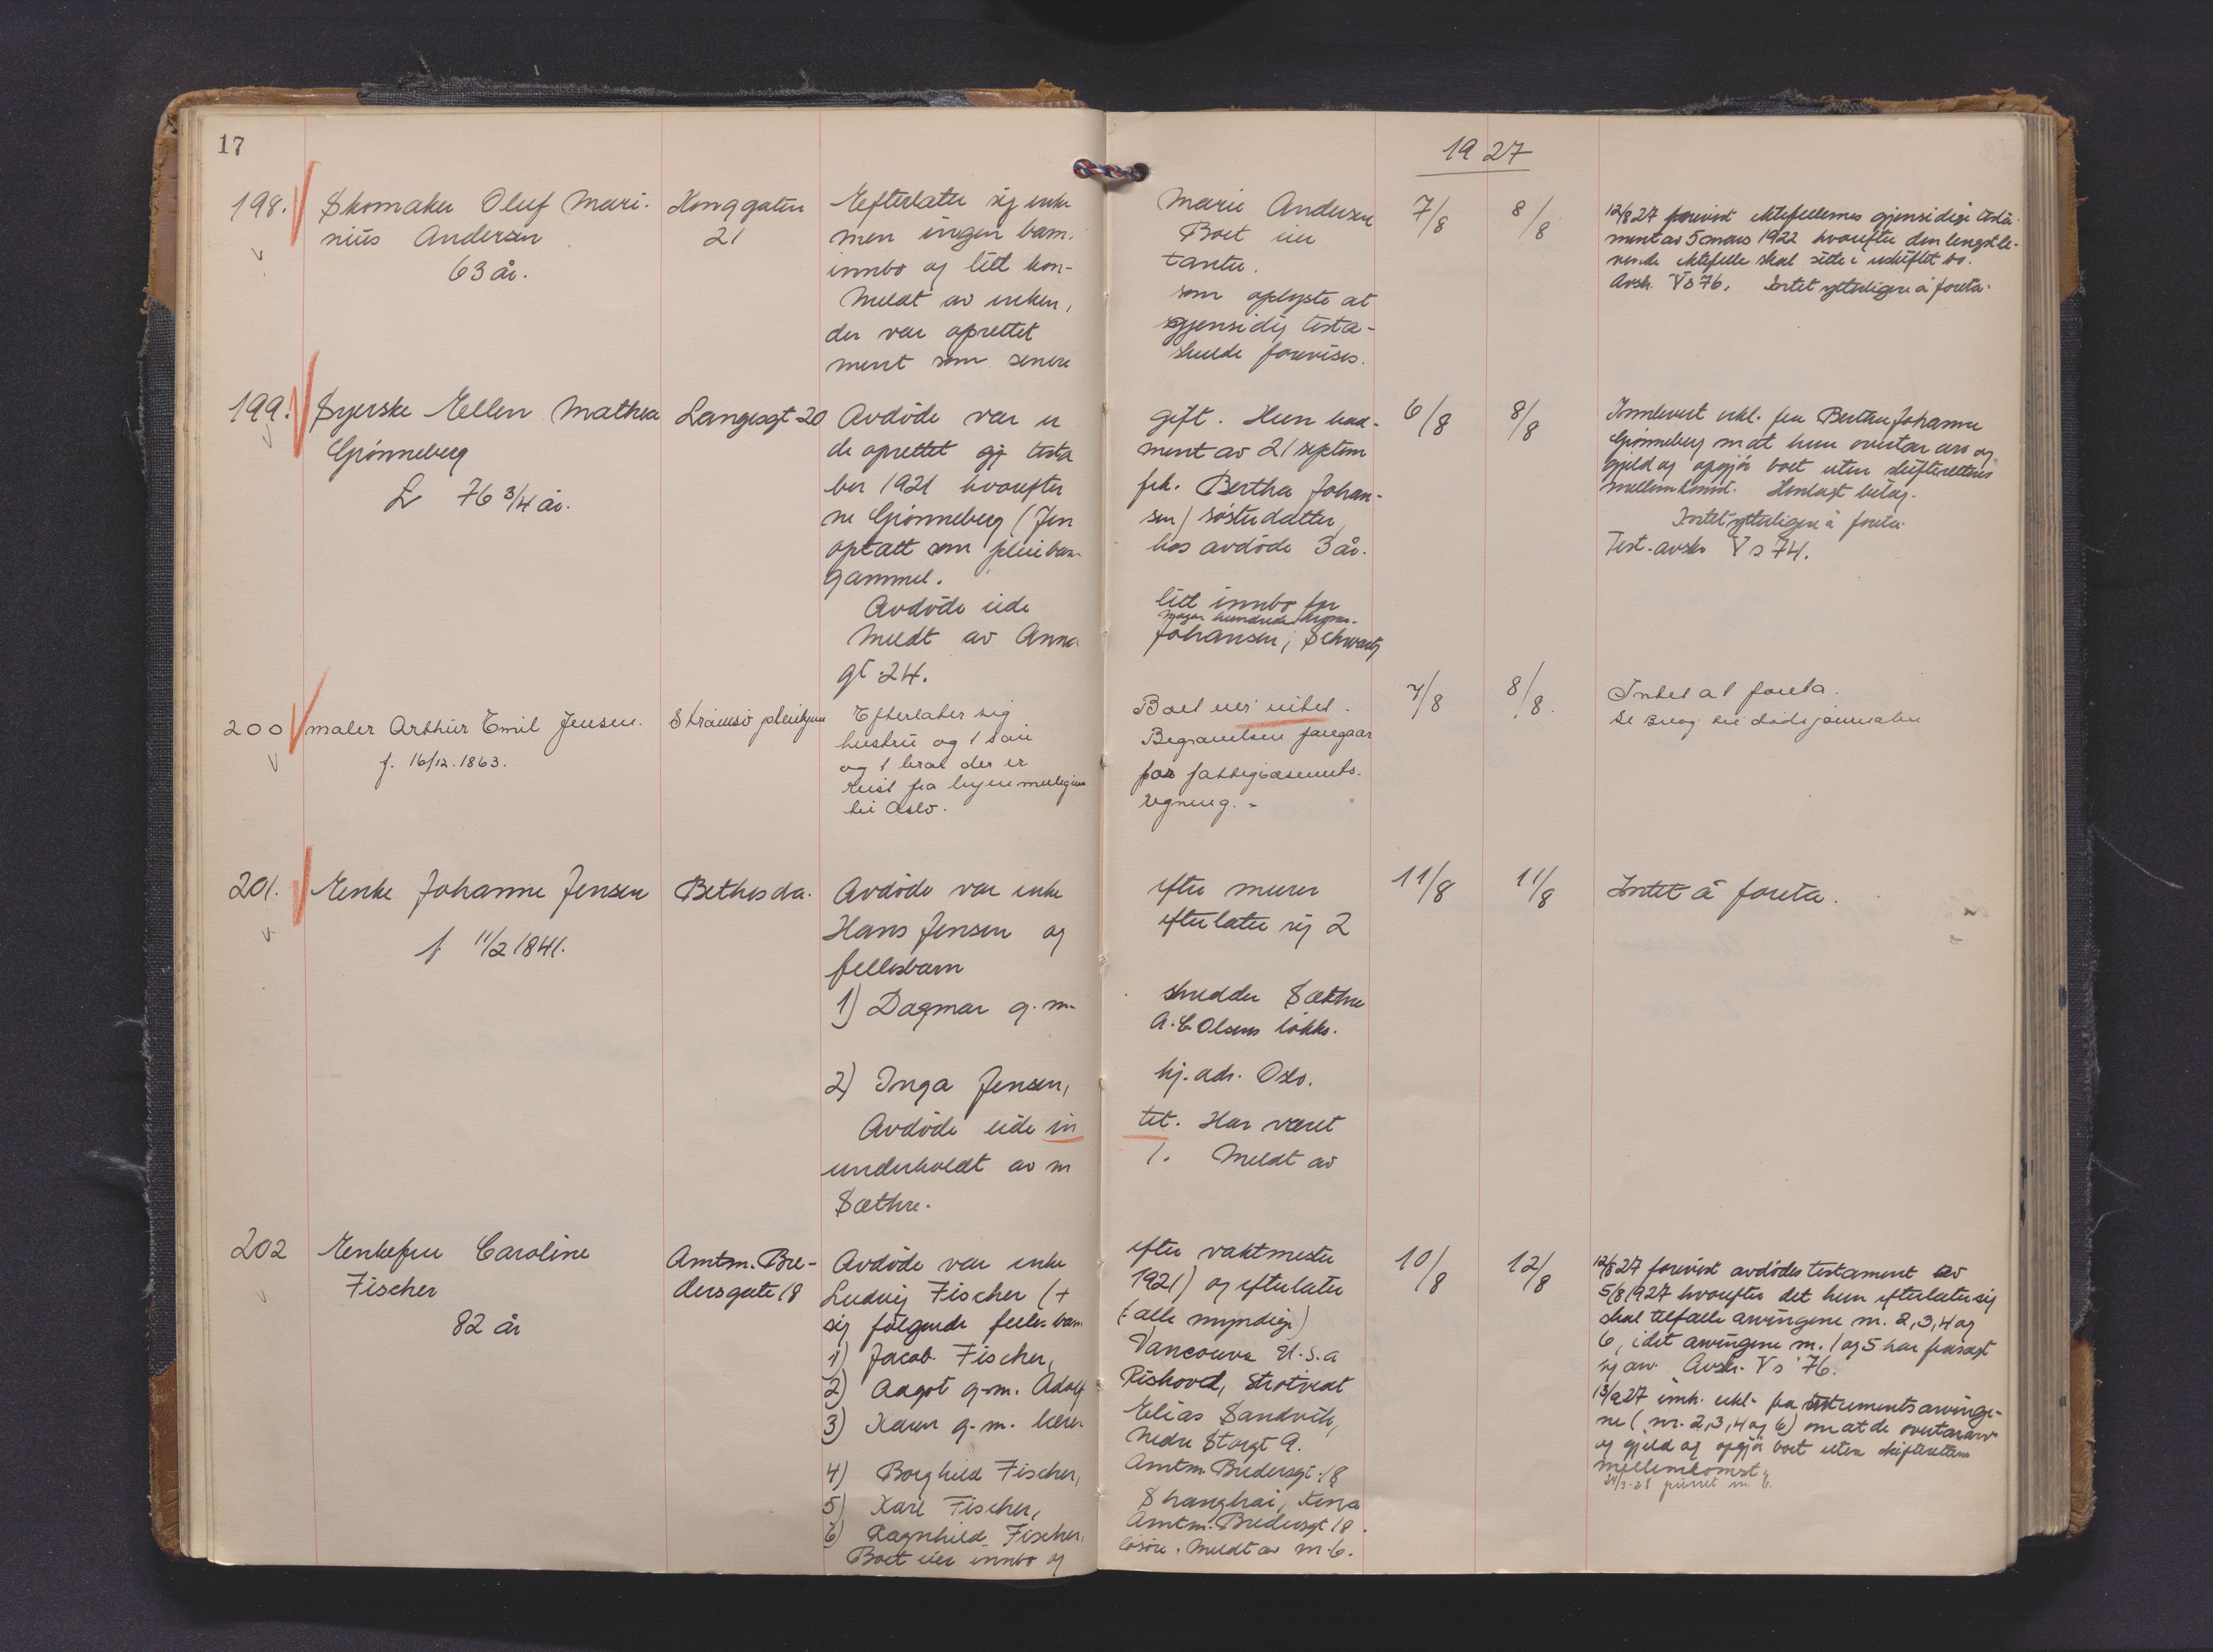 17
19 27
198. Skomaker Oluf Mari- Konggaten Efterlater sig enke Marie Andersen 7/8 8/8
nius Andersen 21 men ingen barn. Boet eier
63 år. innbo og litt kon- tanter.
Meldt av enken, som oplyste at
der var oprettet gjensidig testa-
ment som senere skulde forevises.
12/8 27 forevist ektefellernes gjensidige testa-
ment av 5 mars 1922 hvorefter den lengstle-
vende ektefelle skal sitte i uskiftet bo.
Avskr. V s 76. Intet ytterligere å foreta.
199. Syerske Ellen Mathea Langesgt 20 Avdøde var u gift. Hun had- 6/8 8/8
Grønneberg de oprettet testa ment av 21 septem
L 76 3/4 år. ber 1921 hvorefter frk. Bertha Johan-
ne Grønneberg (Jen sen) søsterdatter
optatt som pleiebarn hos avdøde 3 år.
gammel.
Avdøde eide litt innbo for
nogen hundrede kroner.
Meldt av Anna Johansen, Schwartz
gt 24.
Innlevert erkl. fra Bertha Johanne
Grønneberg om at hun overtar arv og
gjeld og opgjør boet uten skifterettens
mellemkomst. Henlagt bilag.
Intet ytterligere å foreta.
Test. avskr V s 74.
200 maler Arthur Emil Jensen. Strømsø pleiehjem Efterlater sig Boet eier intet. 7/8 8/8.
f. 16/12.1863. hustru og 1 søn Begravelsen foregaar
og 1 barn der er for fattigvæsenets
reist fra byen muligens regning. -
til Oslo.
Intet at foreta.
Se Bilag til dødsjournalen
201. Enke Johanne Jensen Bethesda. Avdøde var enke efter murer 11/8 11/8 Intet å foreta.
f. 11/2 1841. Hans Jensen og efterlater sig 2
fellesbarn
1) Dagmar g. m. skredder Sæthre
A. C. Olsens løkke.
2) Inga Jensen, hj. adr. Oslo.
Avdøde eide in tet. Har været
underholdt av nr 1. Meldt av
Sæthre.
202 Enkefru Caroline Amtm. Bre- Avdøde var enke efter vaktmester 10/8 12/8
Fischer dersgate 18 Ludvig Fischer (+ 1921) og efterlater
82 år sig følgende felles barn (alle myndige)
1) Jacob Fischer, Vancouver U.S.a
2) Aagot g. m. Adolf Rishovd, Strøtvedt
3) Karen g. m. lærer Elias Sandvik,
Nedre Storgt 9.
4) Borghild Fischer, Amtm. Bredersgt. 18
5) Karl Fischer, Shanghai, Kina
6) Ragnhild Fischer, Amtm. Bredersgt 18.
Boet eier innbo og løsøre. Meldt av nr. 6.
12/8 27 forevist avdødes testament av
5/8 1927 hvorefter det hun efterlater sig
skal tilfalle arvingene nr. 2, 3, 4 og
6, idet arvingene nr. 1 og 5 har frasagt
sig arv. Avskr. V s 76.
13/9 27 innk. erkl. fra testamentsarvinge-
ne (nr. 2, 3, 4 og 6) om at de overtar arv
og gjeld og opgjør boet uten skifterettens
mellemkomst.
purret nr. 6.